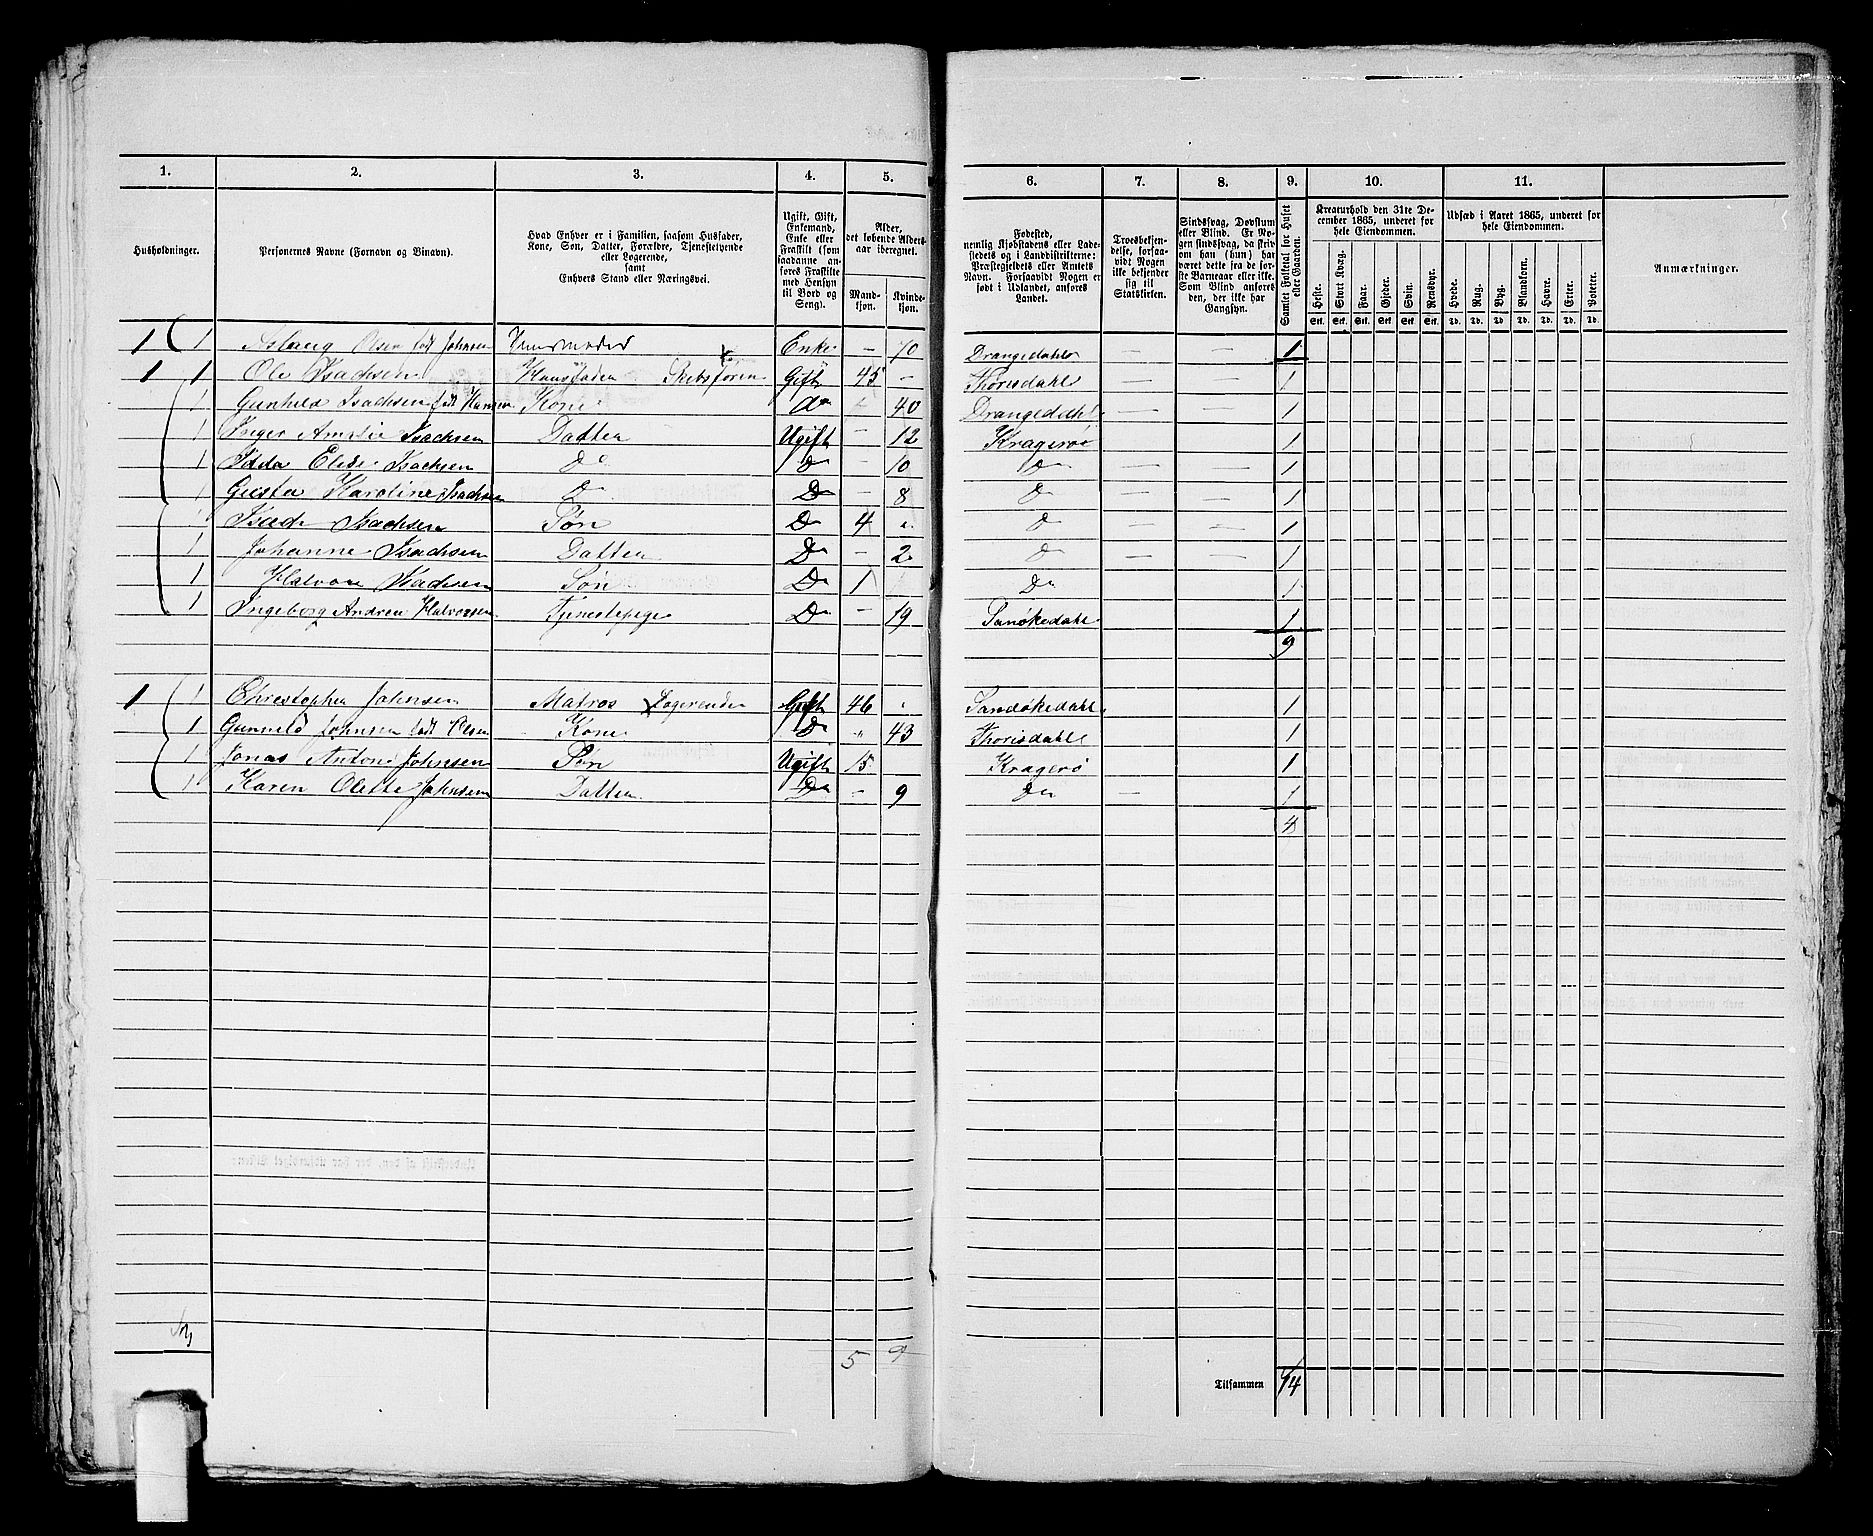 1. 2. 3. 4. 5. 6. 7. 8. 9. 10. 11.
Husholdninger.
Personernes Navne (Fornavn og Binavn).
Hvad Enhver er i Familien, saasom Husfader,
Kone, Søn, Datter, Forældre, Tjenestetyende
eller Logerende,
samt
Enhvers Stand eller Næringsvei.
Ugift, Gift,
Enkemand,
Enke eller
Fraskilt (som
saadanne an-
føres Fraskilte
med Hensyn
til Bord og
Seng).
Alder,
det løbende Alders-
aar iberegnet.
Mand-
kjøn.
Kvinde-
kjøn.
Fødested,
nemlig Kjøbstadens eller Lade-
stedets og i Landdistrikterne:
Præstegjeldets eller Amtets
Navn. Forsaavidt Nogen er
født i Udlandet, anføres
Landet.
Troesbekjen-
delse, forsaa-
vidt Nogen
ikke bekjender
sig til
Statskirken.
Sindssvag, Døvstum
eller Blind. Er No-
gen sindssvag, da skriv
om han (hun) har
været dette fra de før-
ste Barneaar eller ikke.
Som Blind anføres
den, der ikke har
Gangsyn.
Samlet Folketal for Huset
eller Gaarden.
Kreaturhold den 31te De-
cember 1865, underet for
hele Eiendommen.
Heste. Stort Kvæg. Faar. Gjeder. Svin. Rensdyr.
Stk. Stk. Stk. Stk. Stk. Stk.
Udsæd i Aaret 1865, underet for
hele Eiendommen.
Hvede. Rug. Byg. Blandkorn. Havre. Erter. Poteter.
Td. Td. Td. Td. Td. Td. Td.
Anmærkninger.
1 1 Aslaug Olsen født Johnsen Huusmoder Enke — 70 Drangedahl — — 1
1 1 Ole Isachsen Huusfader Skibsfører Gift 45 — Thorisdahl — — 1
1 Gunhild Isachsen født Hansen Kone Do 40 Drangedahl — — 1
1 Inger Amalie Isachsen Datter Ugift — 12 Kragerøe — — 1
1 Idda Elise Isachsen Do Do — 10 Do — — 1
1 Gusta Karoline Isachsen D D — 8 D — — 1
1 Isach Isachsen Søn D 4 D — — 1
1 Johanne Isachsen Datter D — 2 D — — 1
1 Halvor Isachsen Søn D 1 Do 1
1 Ingeborg Andrea Halvorsen Tjenestepige D — 19 Sanøkedahl 1
9
1 1 Christopher Johnsen Matros Logerende Gift 46 Sandøkedahl 1
1 Gunnild Johnsen født Olsen Kone D " 43 Thorisdahl 1
1 Jonas Anton Johnsen Søn Ugift 15 Kragerø 1
1 Karen Olette Johnsen Datter Do — 9 Do — 1
4
5 9
Tilsammen 14